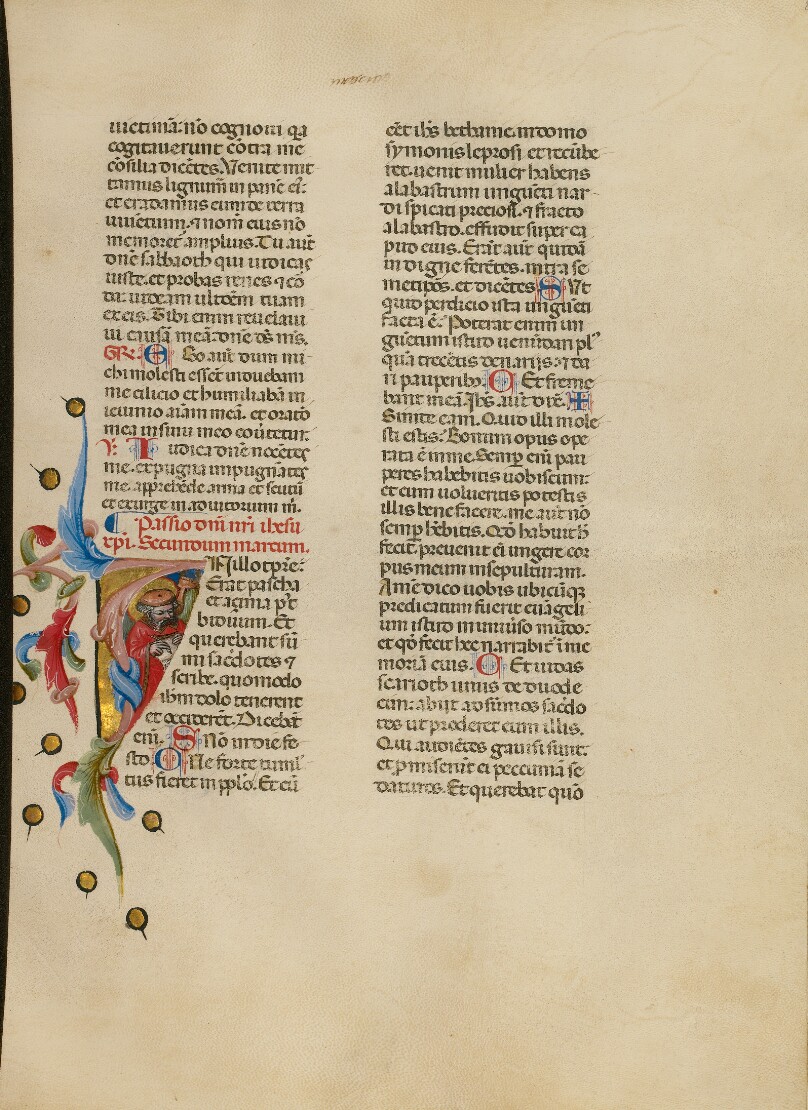 uictimā: nō cognoui qa
cogitauerunt cōtra me
cōsilia dicētes. Uenite mit
tamus lignum in panē ei:
et eradamus eum de terra
uiuentium. ⁊ nom̄ eius nō
memoret̄ amplius. Tu aūt
dn̄e sabbaoth qui iudicas
iuste. et probas renes ⁊ co
da: uideam ultōem tuam
ex eis. Tibi enim reuelaui
cāusā meā: dn̄e ds̄ ms̄.
GR. Ego aūt dum mi
chi molesti essēt induebam
me cilicio et humiliabā in
ieiunio aīam meā. et oratō
mea in sinu meo cōuertetur.
V. Iudica dn̄e nocētes
me. expugna impugnātes
me. apprehēde arma et scutū
et exurge in adiutorium m̄.
Passio dn̄i nr̄i ihesu
xpī. Secundum marcum.
In illo tp̄re:
Erat pascha
et açima p̄t
biduum. Et
querebant sū
mi sacdotes ⁊
scribe. quomodo
ihm dolo tenerent
et occiderēt. Dicebāt
eni. S Nō in die fe
sto C Ne forte tumul
tus fieret in pplo. Et cū
eēt ihs bethanie. in domo
symonis leprosi et recūbe
ret. uenit mulier habens
alabastrum ungueti nar
di spicati preciosi. ⁊ fracto
alabastro. effudit super ca
put eius. Erāt aūt quidā
indigne ferētes. intra se
metipōs. et dicētes S Ut
quid perdicio ista ungueti
facta ē. Poterat enim un
guetum istud uenūdari pl
quā trecētis denarijs. ⁊ da
ri pauperib. C Et freme
bant in eā. Ihs aūt dix̄. +
Sinite eam. Quid illi mole
sti estis: Bonum opus ope
rata ē in me. Semp enī pau
peres habebitis uobiscum:
et cum uolueritis potestis
illis bene facere. me aūt nō
semp hēbitis. Qd̄ habuit h̄
fecit. preuenit ei ungere cor
pus meum in sepulturam.
Amē dico uobis ubicūq
predicatum fuerit euāgeli
um istud in uniūso mūdo:
et qd̄ fecit hec narrabit̄ in me
moriā eius. C Et iudas
scarioth unus de duode
cim: abijt ad sūmos sacdo
tes ut proderet eum illis.
Qui audiētes gauisi sunt:
et pmiserūt ei peccuniā se
daturos. Et querebat quō